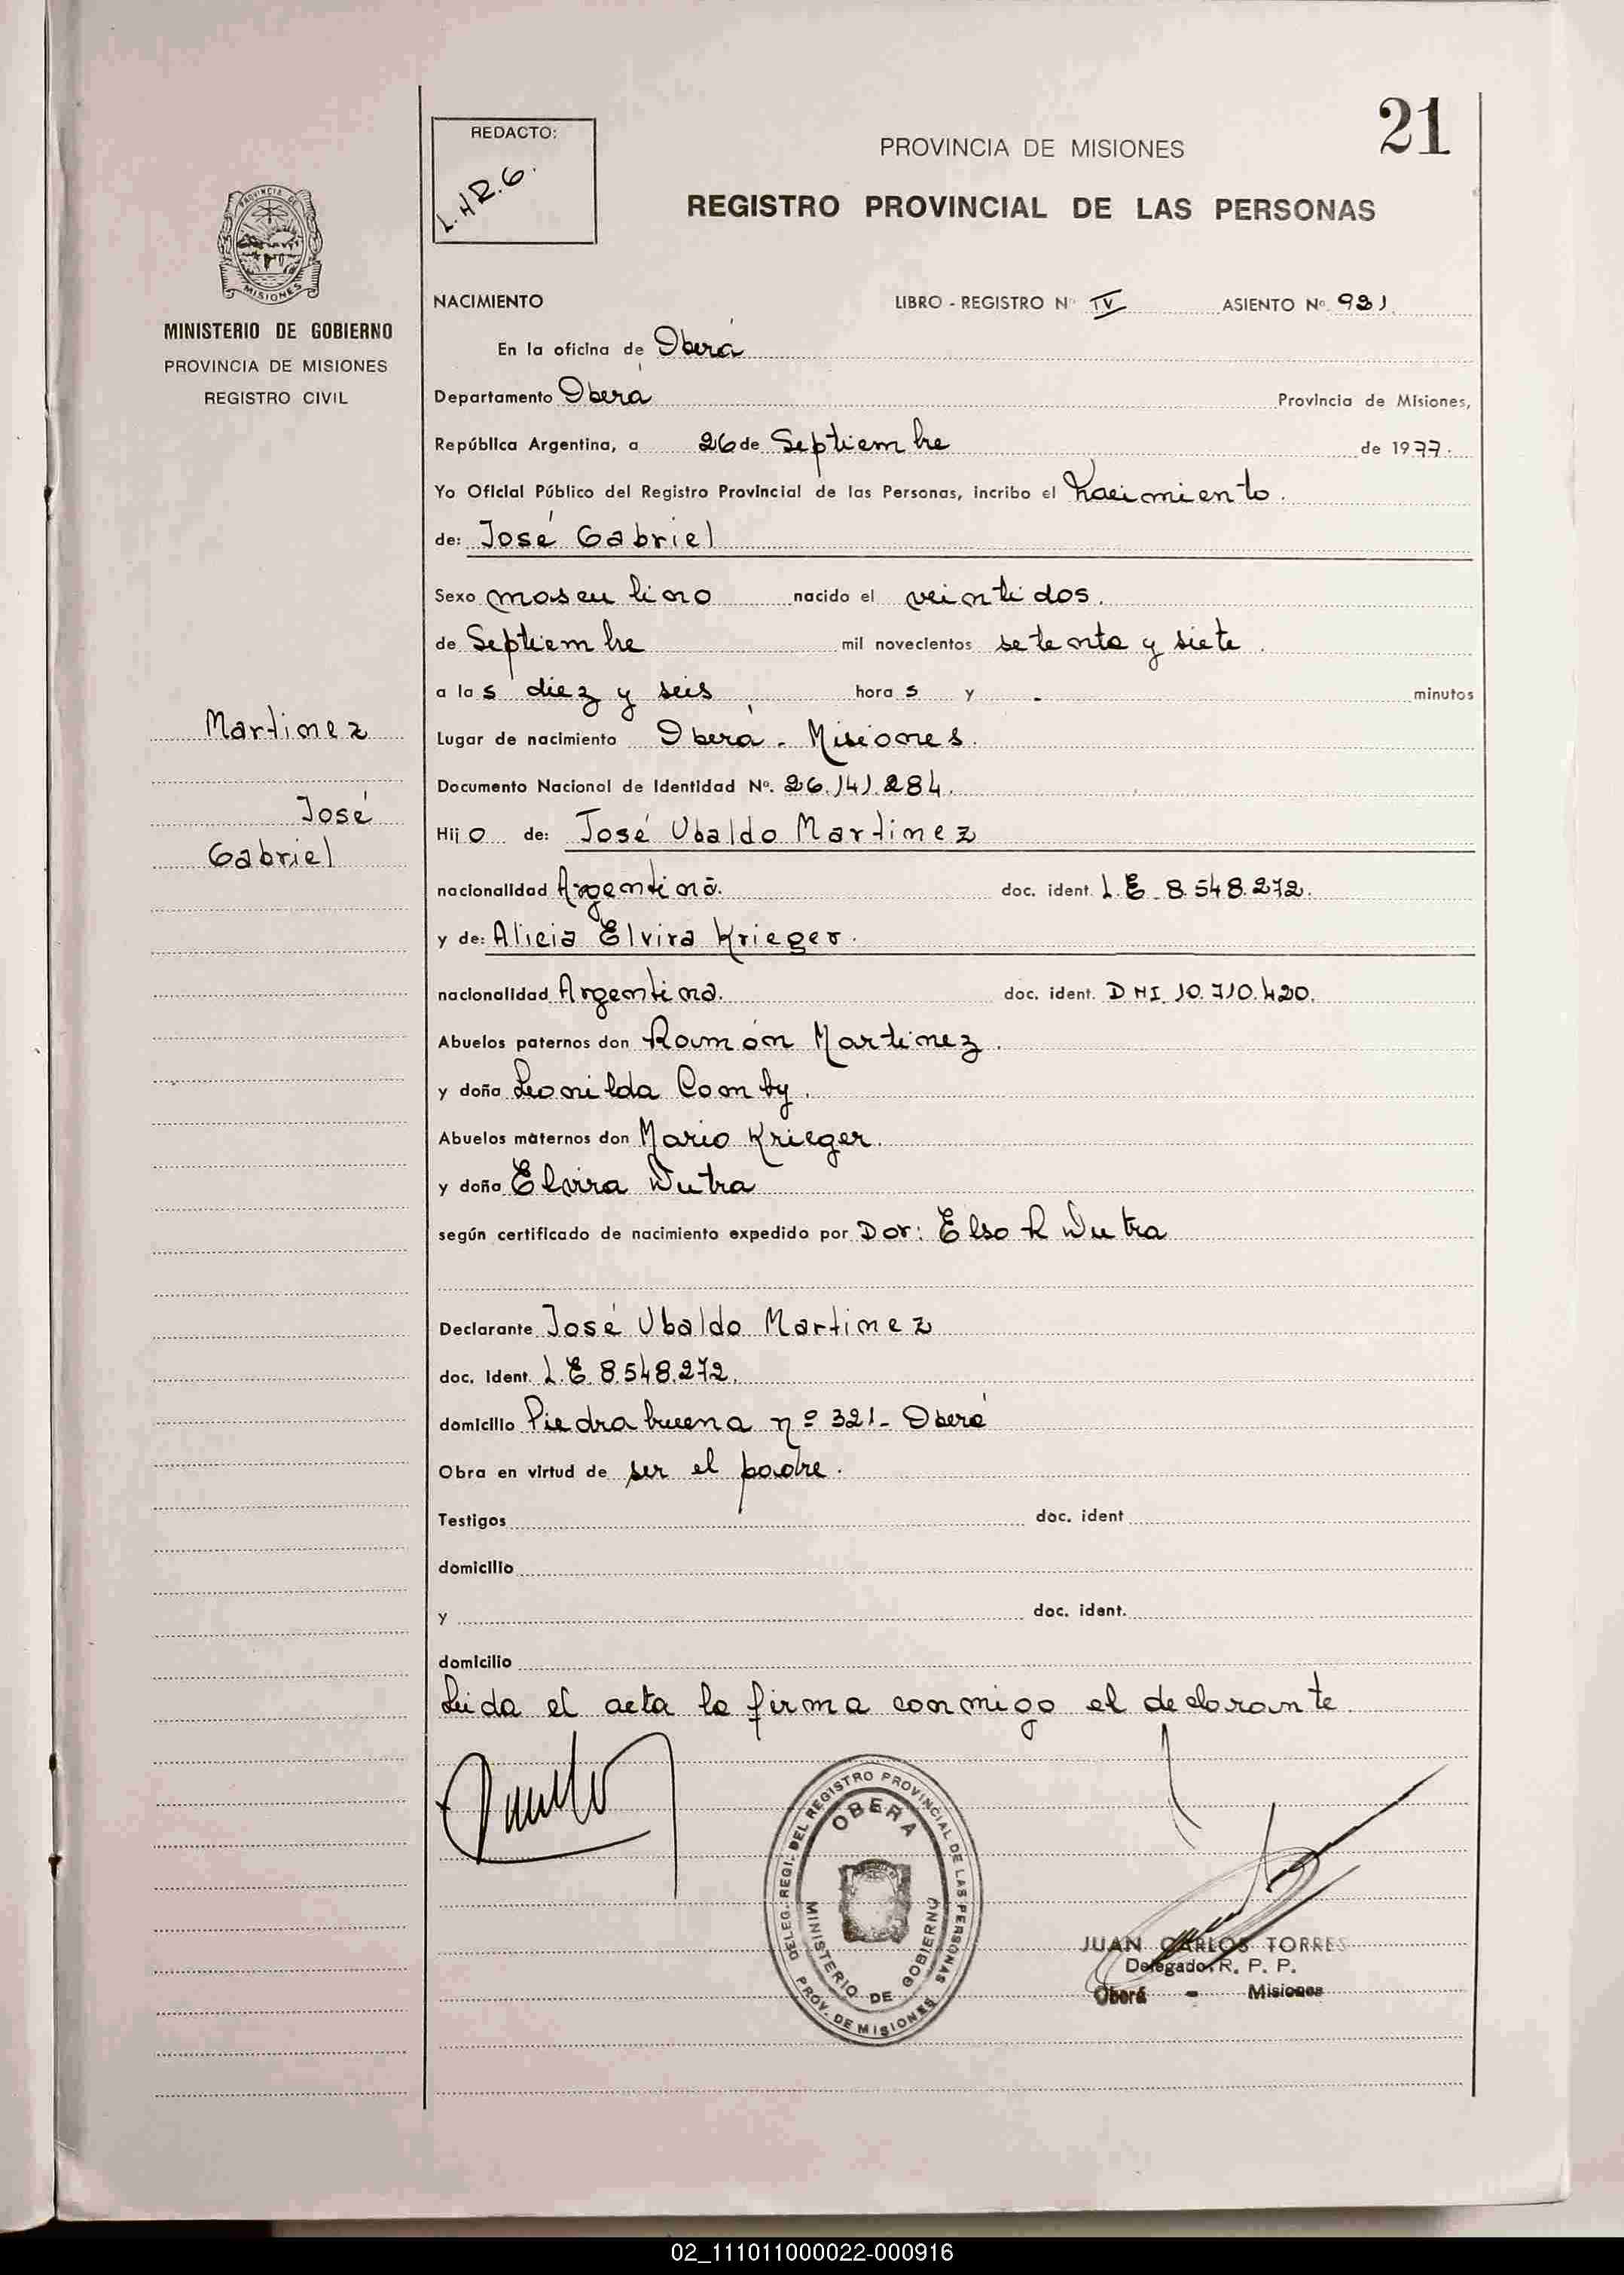 21
REDACTO:
L.H.R.G.
PROVINCIA DE MISIONES
REGISTRO PROVINCIAL DE LAS PERSONAS
PROVINCIA DE
MISIONES
MINISTERIO DE GOBIERNO
PROVINCIA DE MISIONES
REGISTRO CIVIL
Martinez
José
Gabriel
NACIMIENTO LIBRO - REGISTRO Nº IV ASIENTO Nº 931
En la oficina de Oberá
Departamento Oberá Provincia de Misiones,
República Argentina, a 26 de Septiembre de 1977.
Yo Oficial Público del Registro Provincial de las Personas, incribo el Nacimiento.
de: José Gabriel
Sexo masculino nacido el veintidos.
de Septiembre mil novecientos setenta y siete.
a las diez y seis horas y - minutos
Lugar de nacimiento Oberá - Misiones.
Documento Nacional de Identidad Nº. 26.141.284.
Hijo de: José Ubaldo Martinez
nacionalidad Argentina. doc. ident. L.E. 8.548.272.
y de: Alicia Elvira Krieger.
nacionalidad Argentina. doc. ident. DNI. 10.710.420.
Abuelos paternos don Ramón Martinez.
y doña Leonilda Comby.
Abuelos maternos don Mario Krieger.
y doña Elvira Dutra
según certificado de nacimiento expedido por Dor: Elso R Dutra
Declarante José Ubaldo Martinez
doc. Ident. L.E. 8.548.272.
domicilio Piedrabuena nº 321- Oberá
Obra en virtud de ser el padre.
Testigos doc. ident
domicilio
y doc. ident.
domicilio
Leida el acta la firma conmigo el declarante
DELEG. REGI. DEL REGISTRO PROVINCIAL DE LAS PERSONAS
OBERA
MINISTERIO DE GOBIERNO
PROV. DE MISIONES
JUAN CARLOS TORRES
Delegado R. P. P.
Oberá - Misiones
02_111011000022-000916